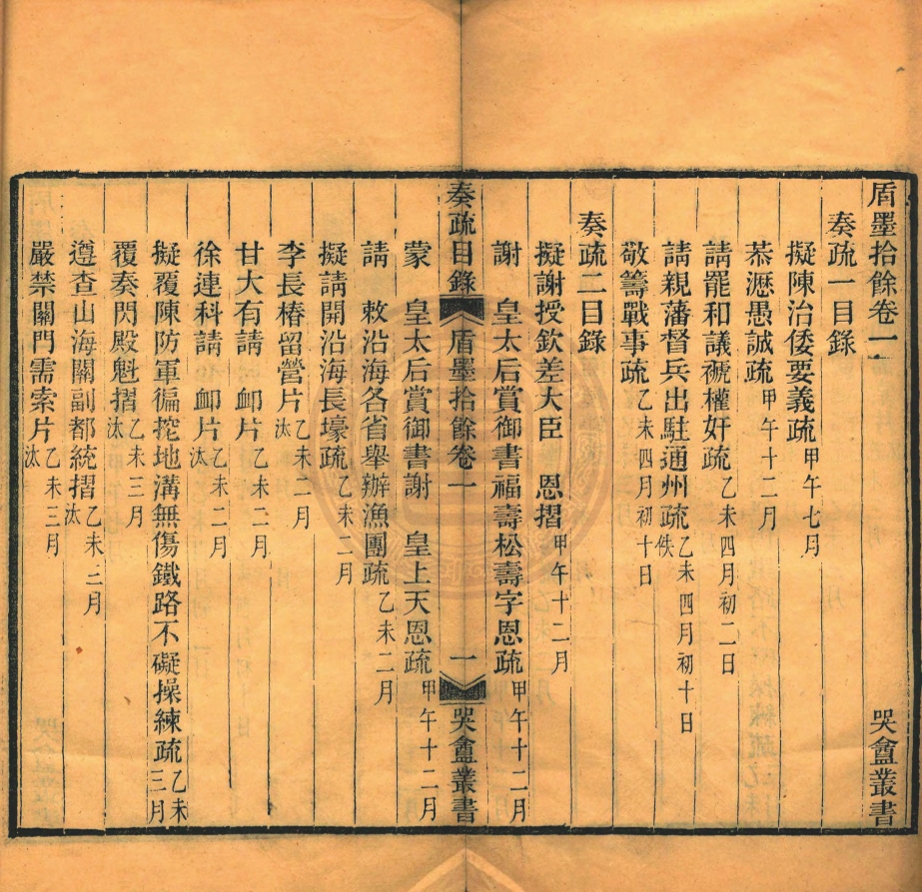 盾墨拾餘卷一 哭盦叢書
奏疏一目錄
擬陳治倭要義疏 甲午七月
恭瀝愚誠疏 甲午十二月
請罷和議褫權奸疏 乙未四月初二日
請親藩督兵出駐通州疏佚 乙未四月初十日
敬籌戰事疏 乙未四月初十日
奏疏二目錄
擬謝授欽差大臣 恩摺 甲午十二月
謝 皇太后賞御書福壽松壽字恩疏 甲午十二月
奏疏目錄 盾墨拾餘卷一 一 哭盦叢書
蒙 皇太后賞御書謝 皇上天恩疏 甲午十二月
請 敕沿海各省舉辦漁團疏 乙未二月
擬請開沿海長壕疏 乙未二月
李長椿留營片汰 乙未二月
甘大有請 卹片 乙未二月
徐連科請 卹片汰 乙未二月
擬覆陳防軍徧挖地溝無傷鐵路不礙操練疏 乙未三月
覆奏閃殿魁摺汰 乙未三月
遵查山海關副都統摺汰 乙未三月
嚴禁關門需索片汰 乙未三月